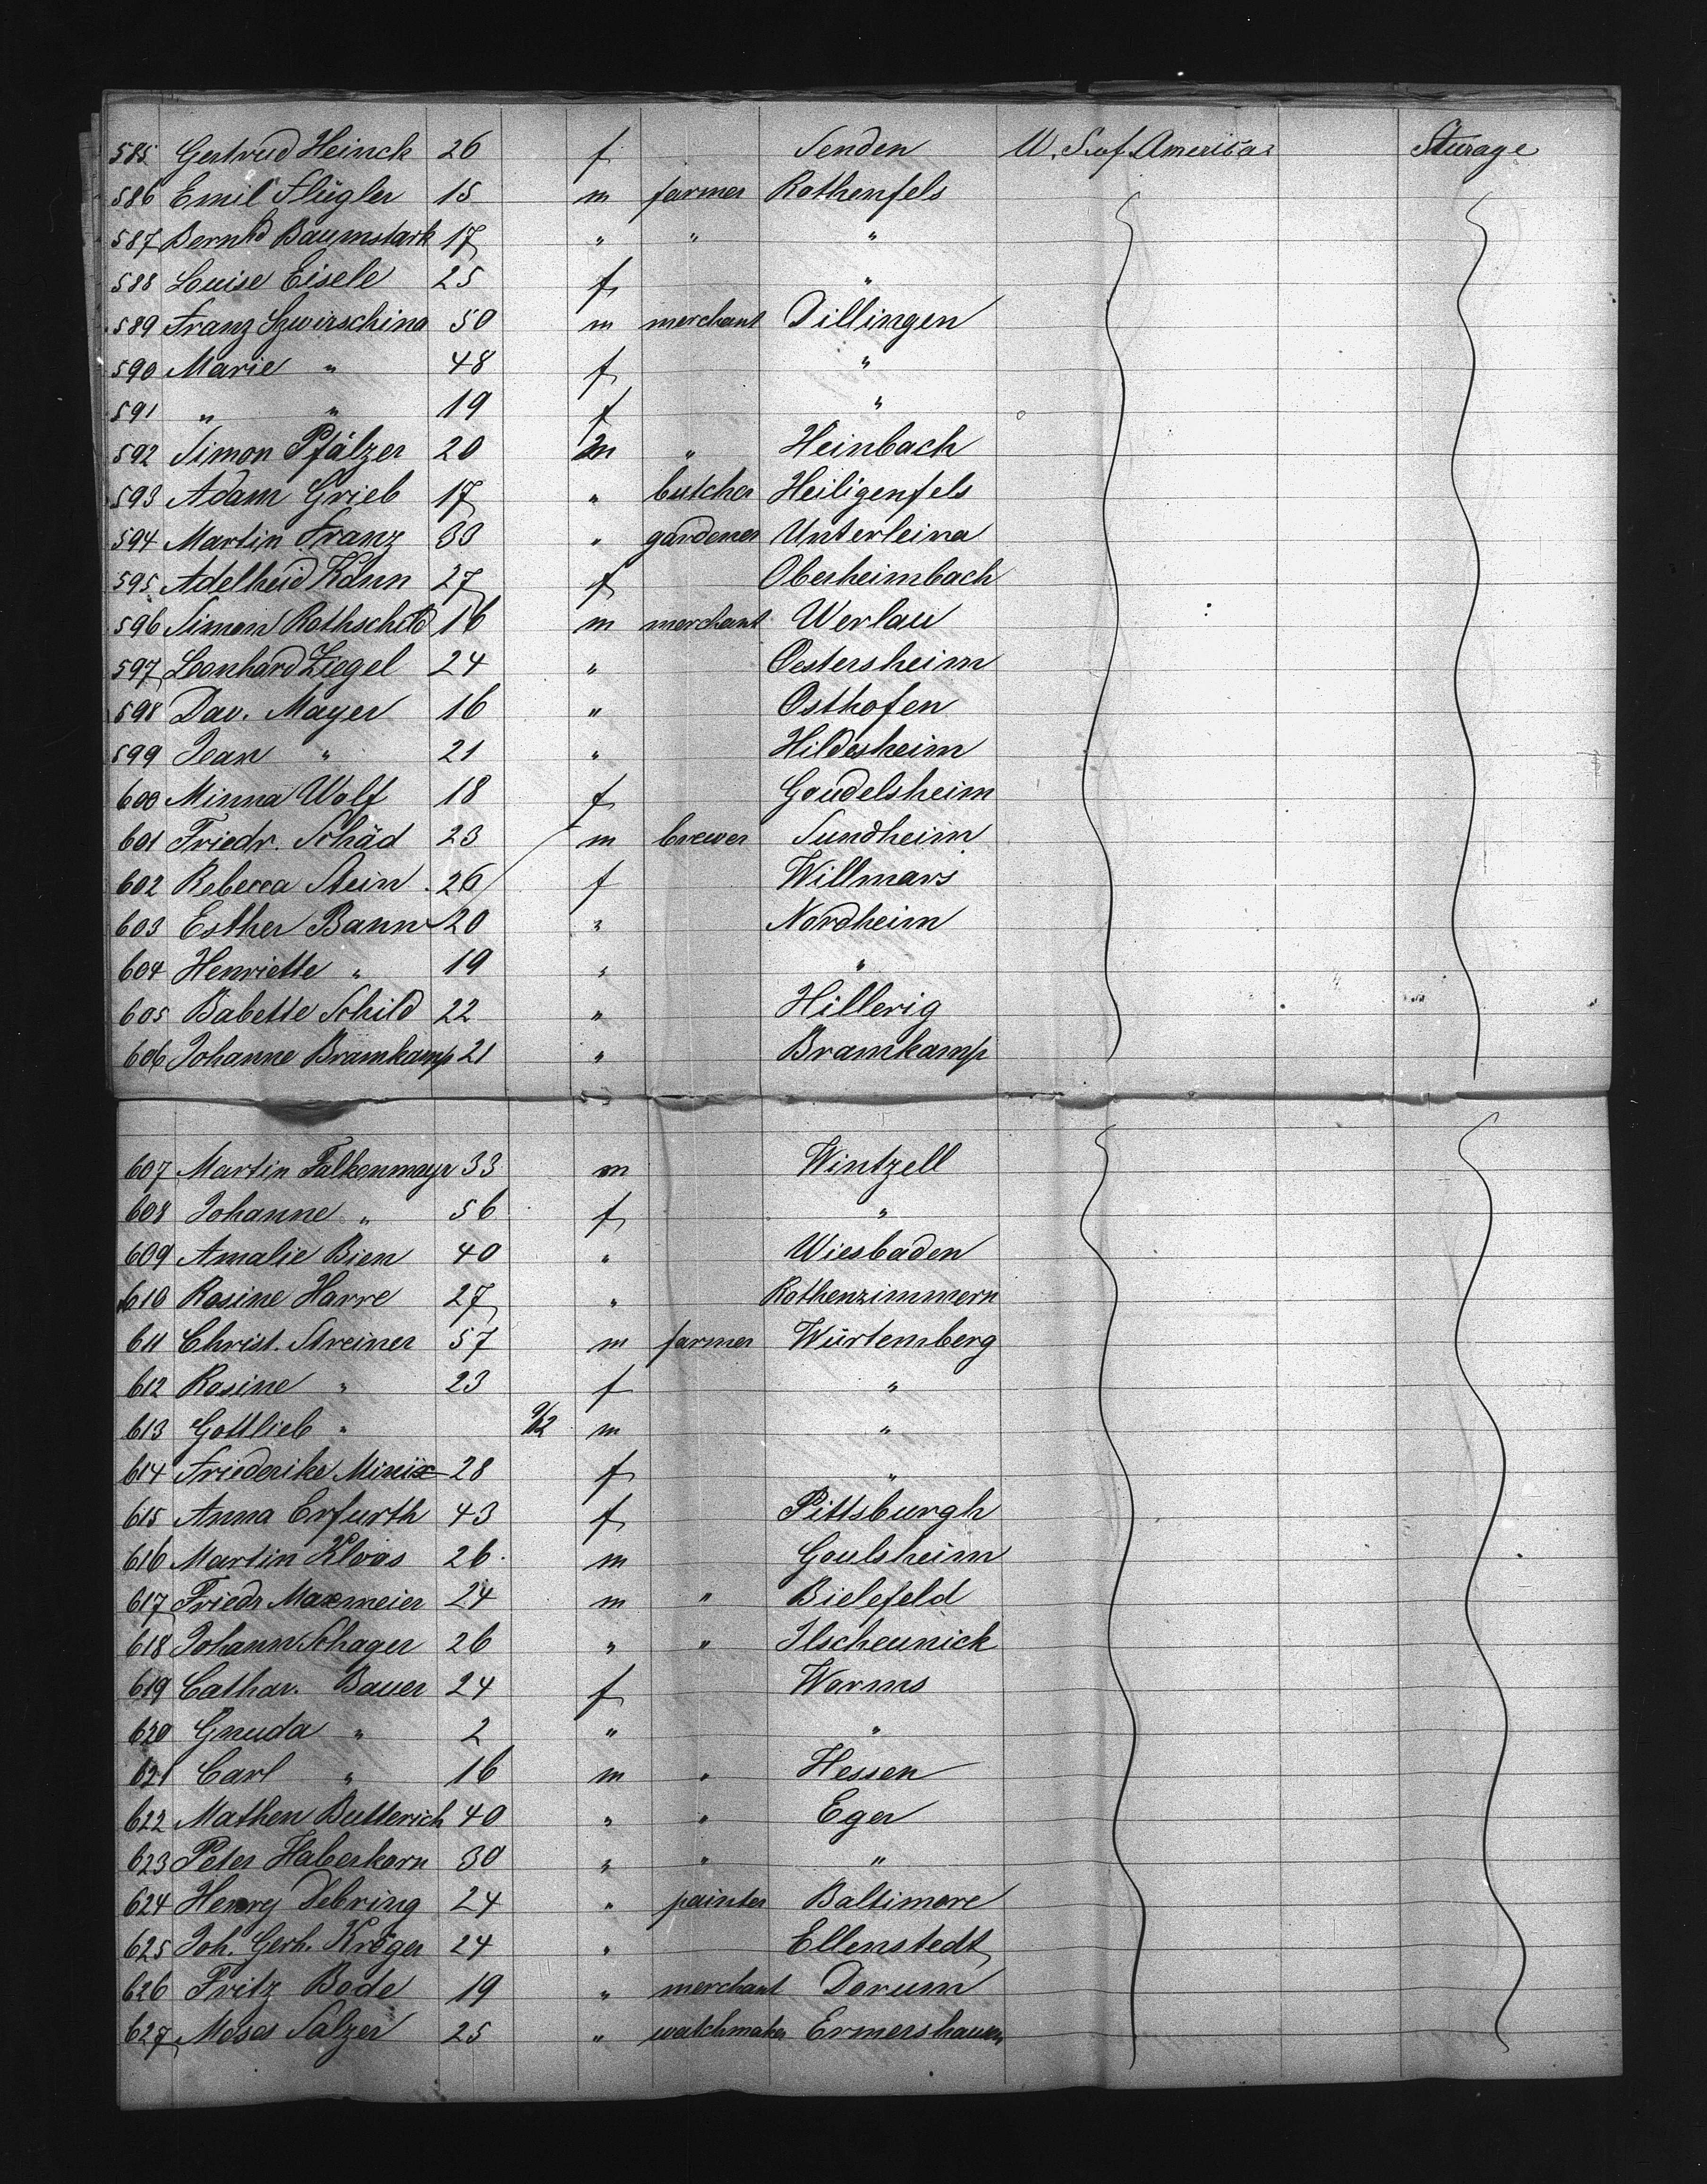 585 Gertrud Heinck 26 f Senden U. S. of America Sturage
586 Emil Flügler 15 m farmer Rothenfels
587 Bernhd Baumstark 17 " " "
588 Louise Eisele 25 f "
589 Franz Szwirschina 50 m merchant Dillingen
590 Marie " 48 f "
591 " " 19 f "
592 Simon Pfälzer 20 m " Heinbach
593 Adam Grieb 17 " butcher Heiligenfels
594 Martin Franz 33 " gardener Unterleina
595 Adelheid Kann 27 f Oberheimbach
596 Simon Rothschild 16 m merchant Werlau
597 Leonhard Ziegel 24 " Oestersheim
598 Dav. Mayer 16 " Osthofen
599 Jean " 21 " Hildesheim
600 Minna Wolf 18 f Goudelsheim
601 Friedr. Schäd 23 m brewer Sundheim
602 Rebecca Stein 26 f Willmars
603 Esther Bann 20 " Nordheim
604 Henriette " 19 " "
605 Babette Schild 22 " Hillerig
606 Johanne Bramkamp 21 " Bramkamp
607 Martin Falkenmayr 33 m Wintzell
608 Johanne " 56 f "
609 Amalie Bien 40 " Wiesbaden
610 Rosine Harre 27 " Rothenzimmern
611 Christ. Streiner 57 m farmer Würtemberg
612 Rosine " 23 f "
613 Gottlieb " 9/12 m "
614 Friederike 28 f "
615 Anna Erfurth 43 f Pittsburgh
616 Martin Kloos 26 m Goulsheim
617 Friedr Maxmeier 24 m " Bielefeld
618 Johann Schager 26 " " Ilscheunick
619 Cathar. Bauer 24 f Worms
620 Gnuda " 2 " "
621 Carl " 16 m " Hessen
622 Mathen Butterich 40 " " Eger
623 Peter Haberkorn 30 " " "
624 Henry Debring 24 " painter Baltimore
625 Joh. Gerh. Kröger 24 " Ellenstedt
626 Fritz Bode 19 " merchant Dorum
627 Moses Salzer 25 " watchmaker Ermershausen